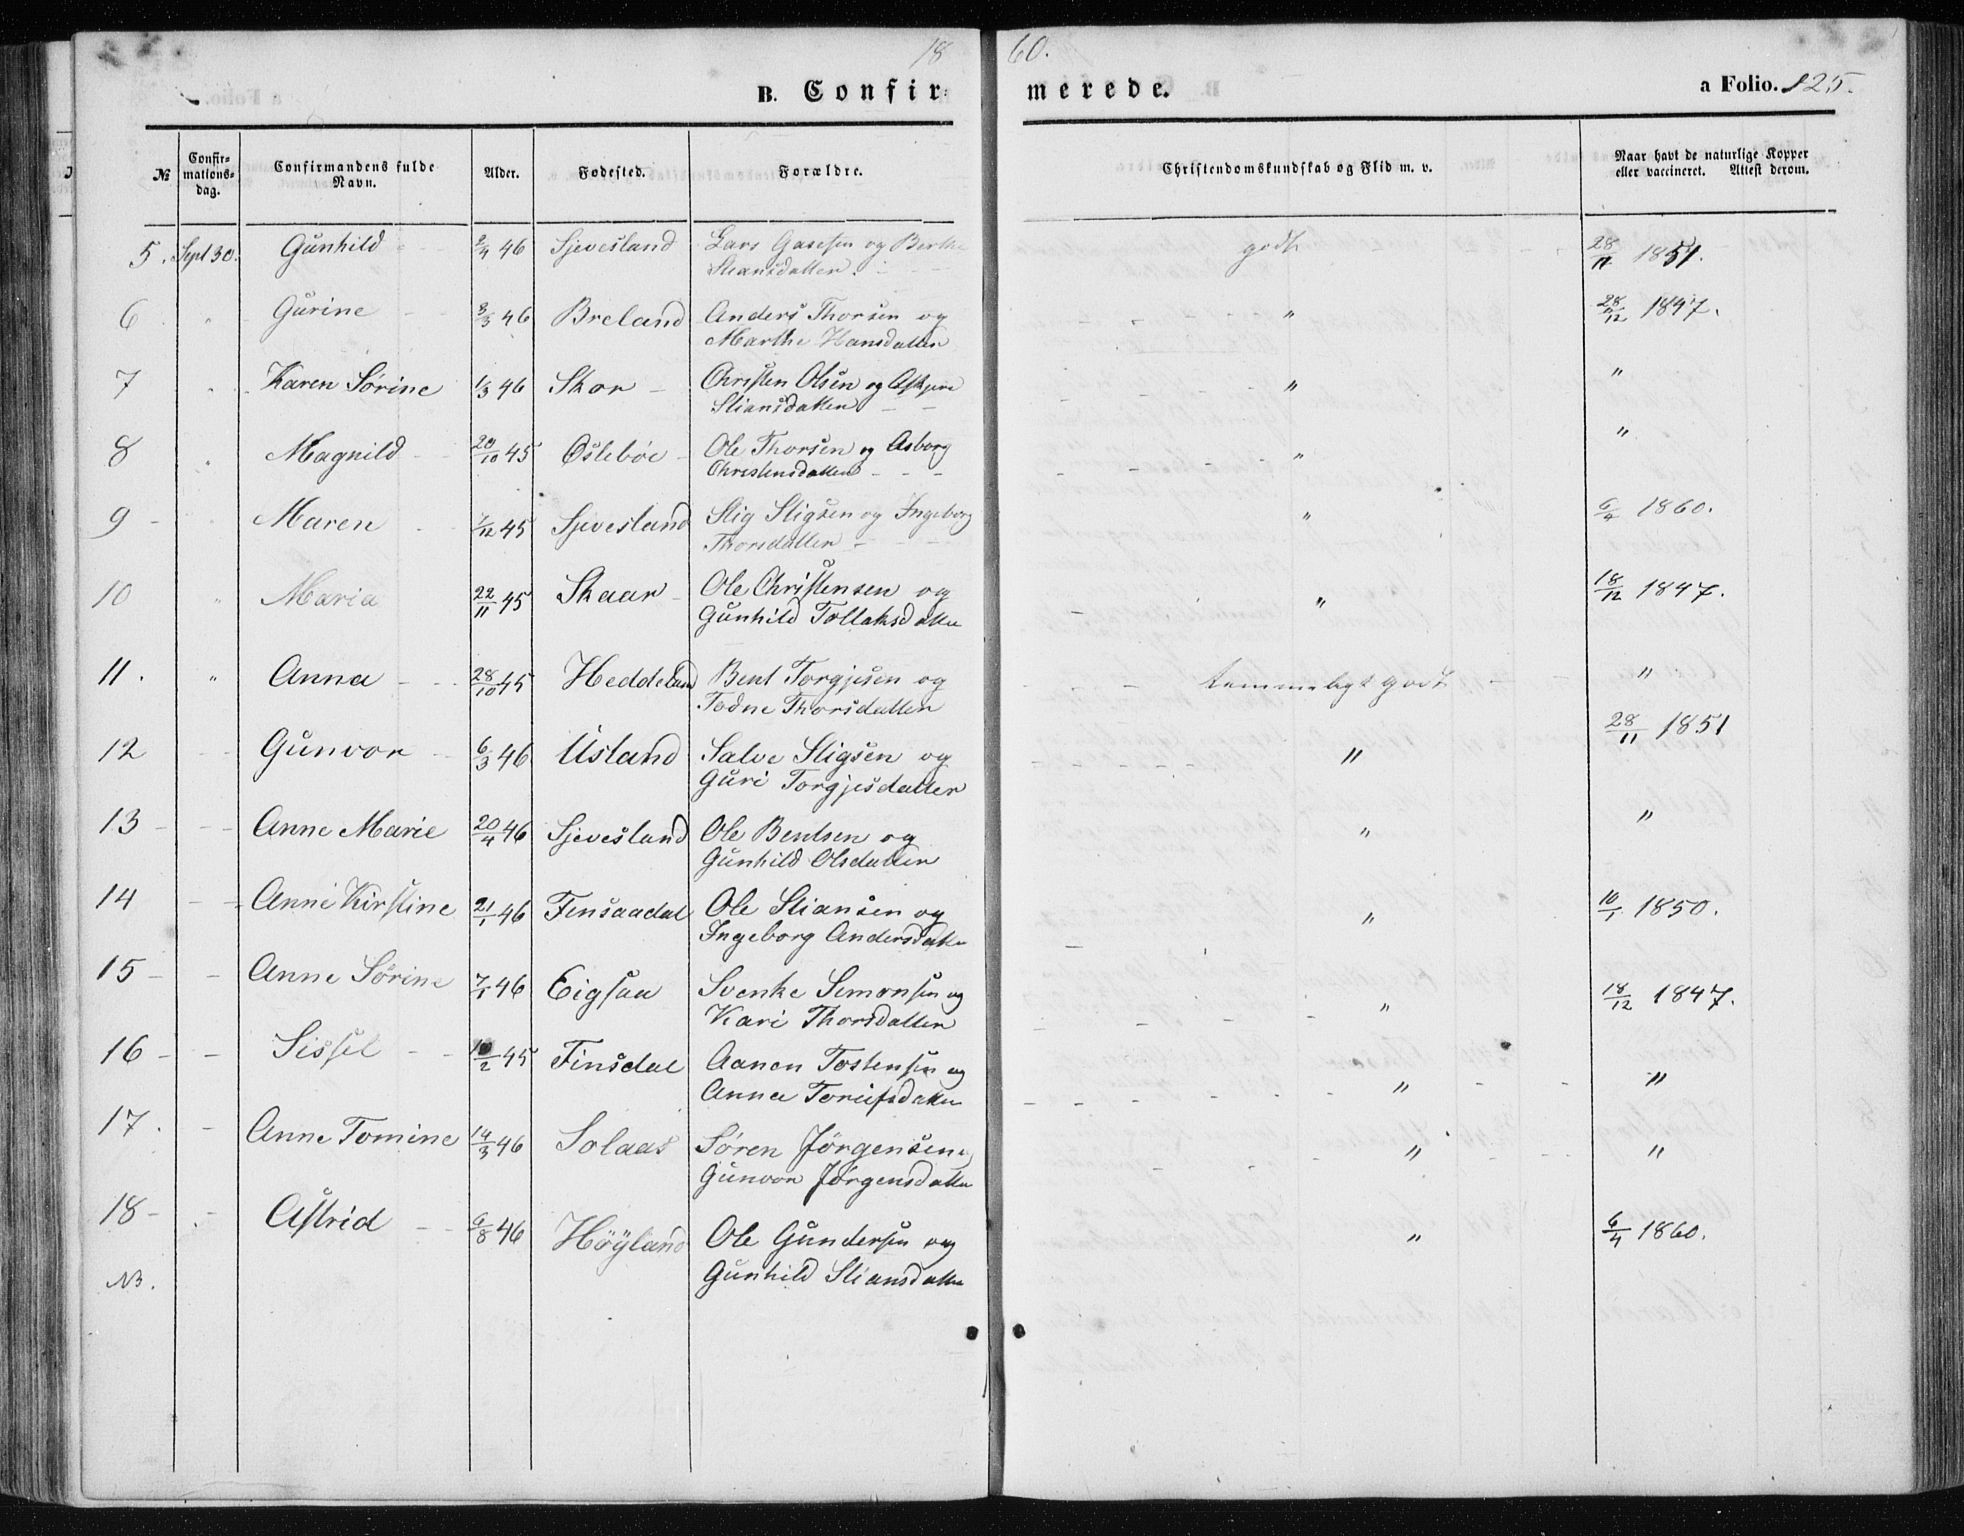 1860.
B. Confirmerede.
a Folio. 125.
№ Confirmationsdag. Confirmandens fulde Navn. Alder. Fødested. Forældre. Christendomskundskab og Flid m. v. Naar havt de naturlige Kopper eller vaccineret. Attest derom.
5. Sept 30. Gunhild 2/4 46 Sjevesland Lars Gasesen og Berthe godt 28/11 1851.
Stiansdatter.
6 " Gurine 8/3 46 Breland Anders Thorsen og " 28/12 1847.
Marthe Hansdatter
7 " Karen Sørine 1/3 46 Skor Christen Olsen og " "
Stiansdatter
8 " Magnild 20/10 45 Oslebøe Ole Thorsen og Asborg " "
Christensdatter
9 - Maren 7/12 45 Sjevesland Stig Stigsen og Ingeborg " 6/4 1860.
Thorsdatter
10 " Maria 22/11 45 Skaar Ole Christensen og " 18/12 1847.
Gunhild Tollaksdatter
11. " Anna 28/10 45 Heddeland Bent Torgjesen og temmeligt godt "
Todne Thorsdatter
12 - Gunvor 6/3 46 Usland Salve Stigsen og " 28/11 1851
Guri Torgjesdatter
13 - - Anne Marie 20/4 46 Sjevesland Ole Bentsen og " "
Gunhild Olsdatter
14 - Anne Kirstine 21/1 46 Finsaadal Ole Stiansen og " 10/1 1850.
Ingeborg Andersdatter
15 - - Anne Sørine 7/1 46 Eigsaa Svenke Simonsen og " 18/12 1847.
Kari Thorsdatter
16 - - Sissel 10/2 45 Finsdal Aanen Tostensen og " "
Anna datter
17. - Anne Tomine 14/3 46 Solaas Søren Jørgensen og " "
Gunvor Jørgensdatter
18 - - Astrid 6/8 46 Høyland Ole Gundersen og " 6/4 1860.
NB. Gunhild Stiansdatter